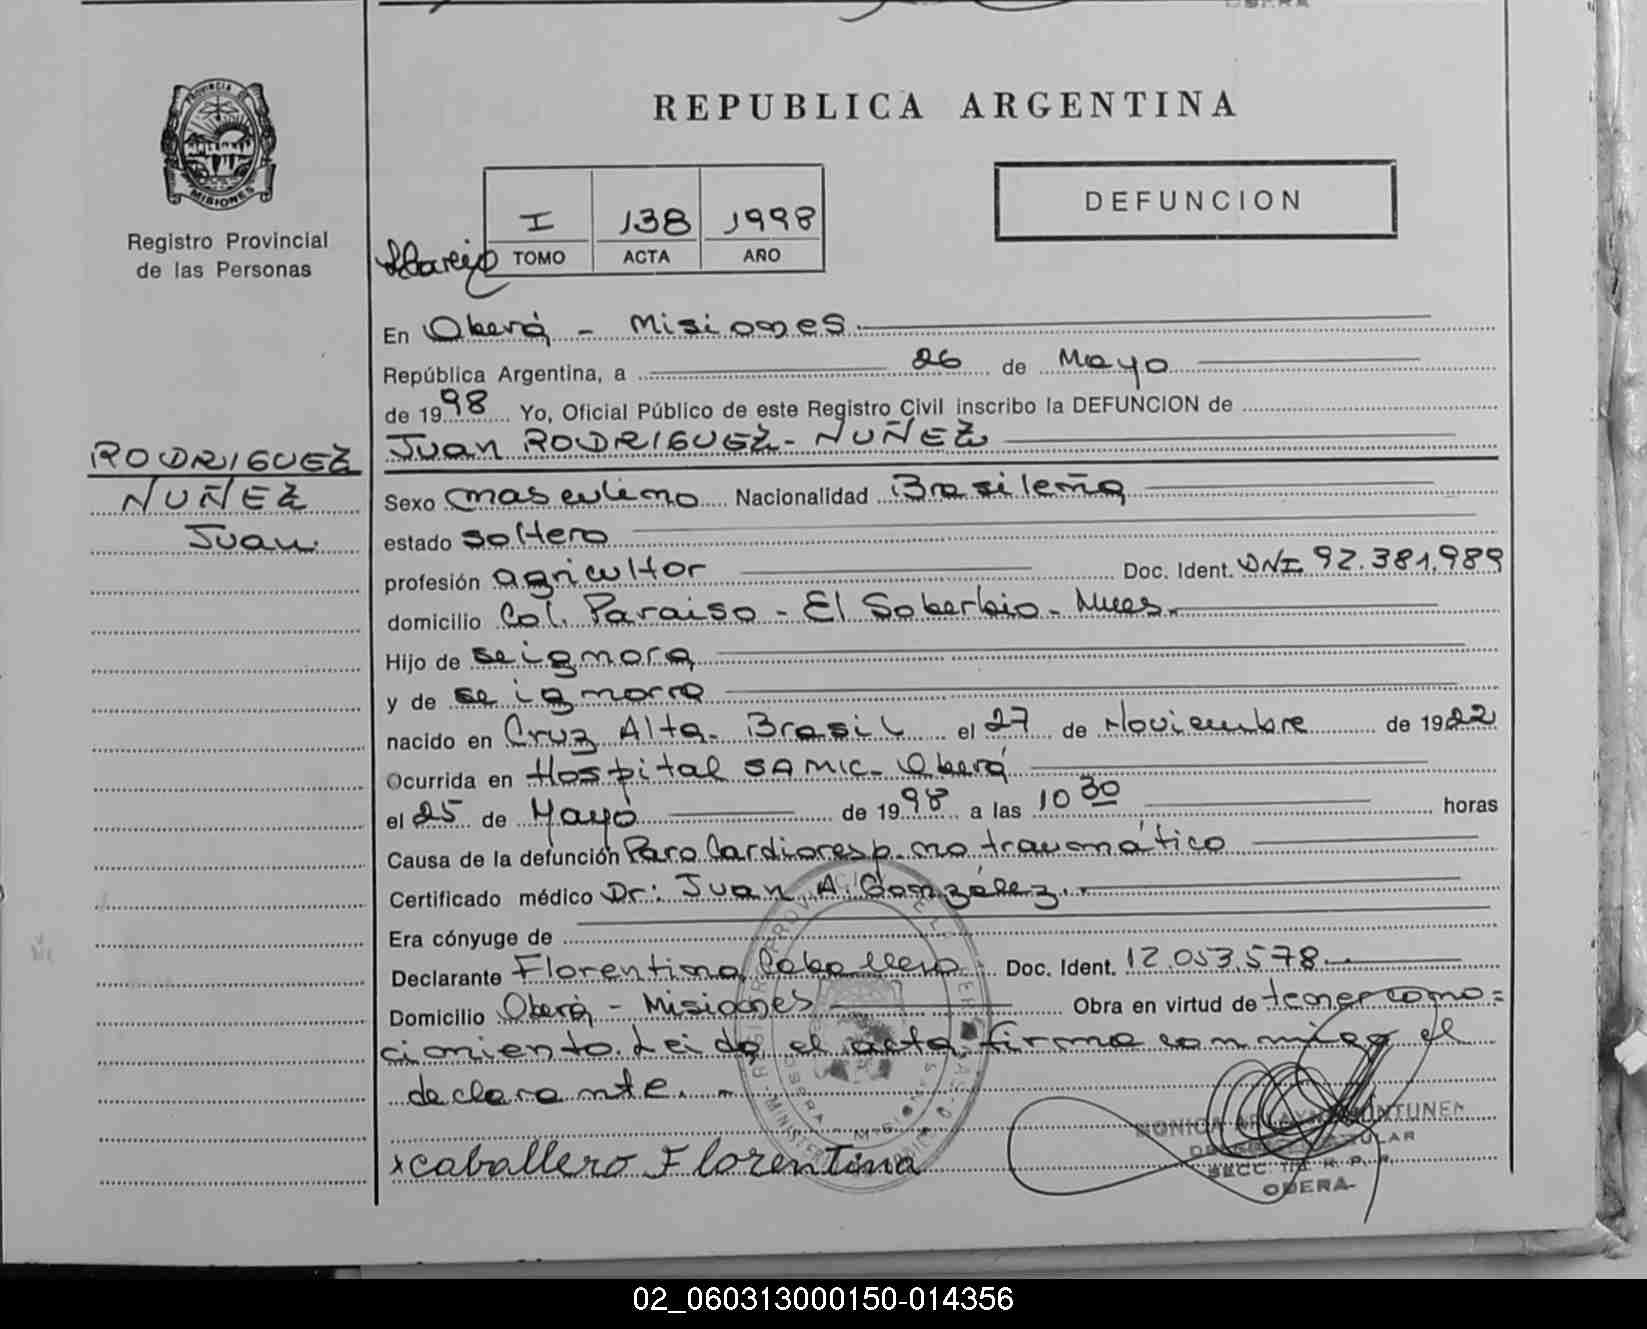 REPUBLICA ARGENTINA
PROVINCIA DE
MISIONES
Registro Provincial
de las Personas
I 138 1998
TOMO ACTA AÑO
DEFUNCION
En Oberá - Misiones.
República Argentina, a 26 de Mayo
de 1998 Yo, Oficial Público de este Registro Civil inscribo la DEFUNCION de
Juan RODRIGUEZ - NUÑEZ
RODRIGUEZ
NUÑEZ
Juan.
Sexo masculino Nacionalidad Brasileña
estado soltero
profesión agricultor Doc. Ident. DNI 92.381.989
domicilio Col. Paraiso - El Soberbio - Mnes.
Hijo de se ignora
y de se ignorra
nacido en Cruz Alta - Brasil el 27 de Noviembre de 1922
Ocurrida en Hospital SAMIC - Oberá
el 25 de Mayo de 1998 a las 10 30 horas
Causa de la defunción Paro Cardioresp. no traumático
Certificado médico Dr: Juan A. González.
Era cónyuge de
Declarante Florentina Caballero Doc. Ident. 12.053.578
Domicilio Oberá - Misiones Obra en virtud de tener cono=
cimiento. Leida el acta, firma conmigo el
declarante.
x caballero Florentina
OBERA
02_060313000150-014356